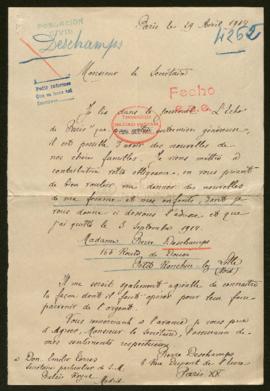 Paris le 29 Avril 1917
POBLACIÓN
CIVIL
4262
Deschamps
Pedir informes
Monsieur le Secrétaire
Fecho
Je lis dans le journal "L'Echo
de Paris" que par votre intervention généreuse,
il est possible d'avoir des nouvelles de
nos chères familles. Je viens mettre à
contribution votre obligeance, en vous priant
de bien vouloir me donner des nouvelles
de ma femme et mes enfants, dont je
vous donne ci dessous l'adresse et que
j'ai quittés le 3 Septembre 1914.
Madame Pierre Deschamps
Route de Douai
Petit Ronchin lez Lille
(Nord)
Il me serait également agréable de connaître
la façon dont il faut opérer pour leur faire
parvenir de l'argent.
Vous remerciant à l'avance je vous prie
d'agréer, Monsieur le Secrétaire, l'assurance de
mes sentiments respectueux
Pierre Deschamps
Don Emilio Torres
Secrétaire particulier de S.M.
Palais Royal
Madrid
Paris XX